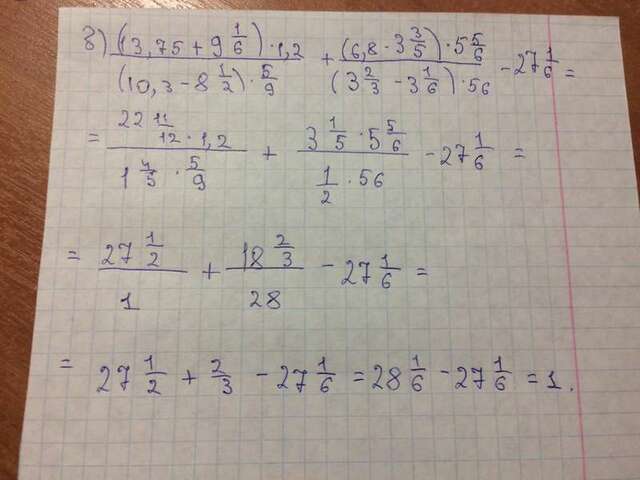 8) (13,75 + 9 1/6) · 1,2 / (10,3 - 8 1/2) · 5/9 + (6,8 - 3 3/5) · 5 5/6 / (3 2/3 - 3 1/6) · 56 - 27 1/6 =
= 22 11/12 · 1,2 / 1 4/5 · 5/9 + 3 1/5 · 5 5/6 / 1/2 · 56 - 27 1/6 =
= 27 1/2 / 1 + 18 2/3 / 28 - 27 1/6 =
= 27 1/2 + 2/3 - 27 1/6 = 28 1/6 - 27 1/6 = 1.